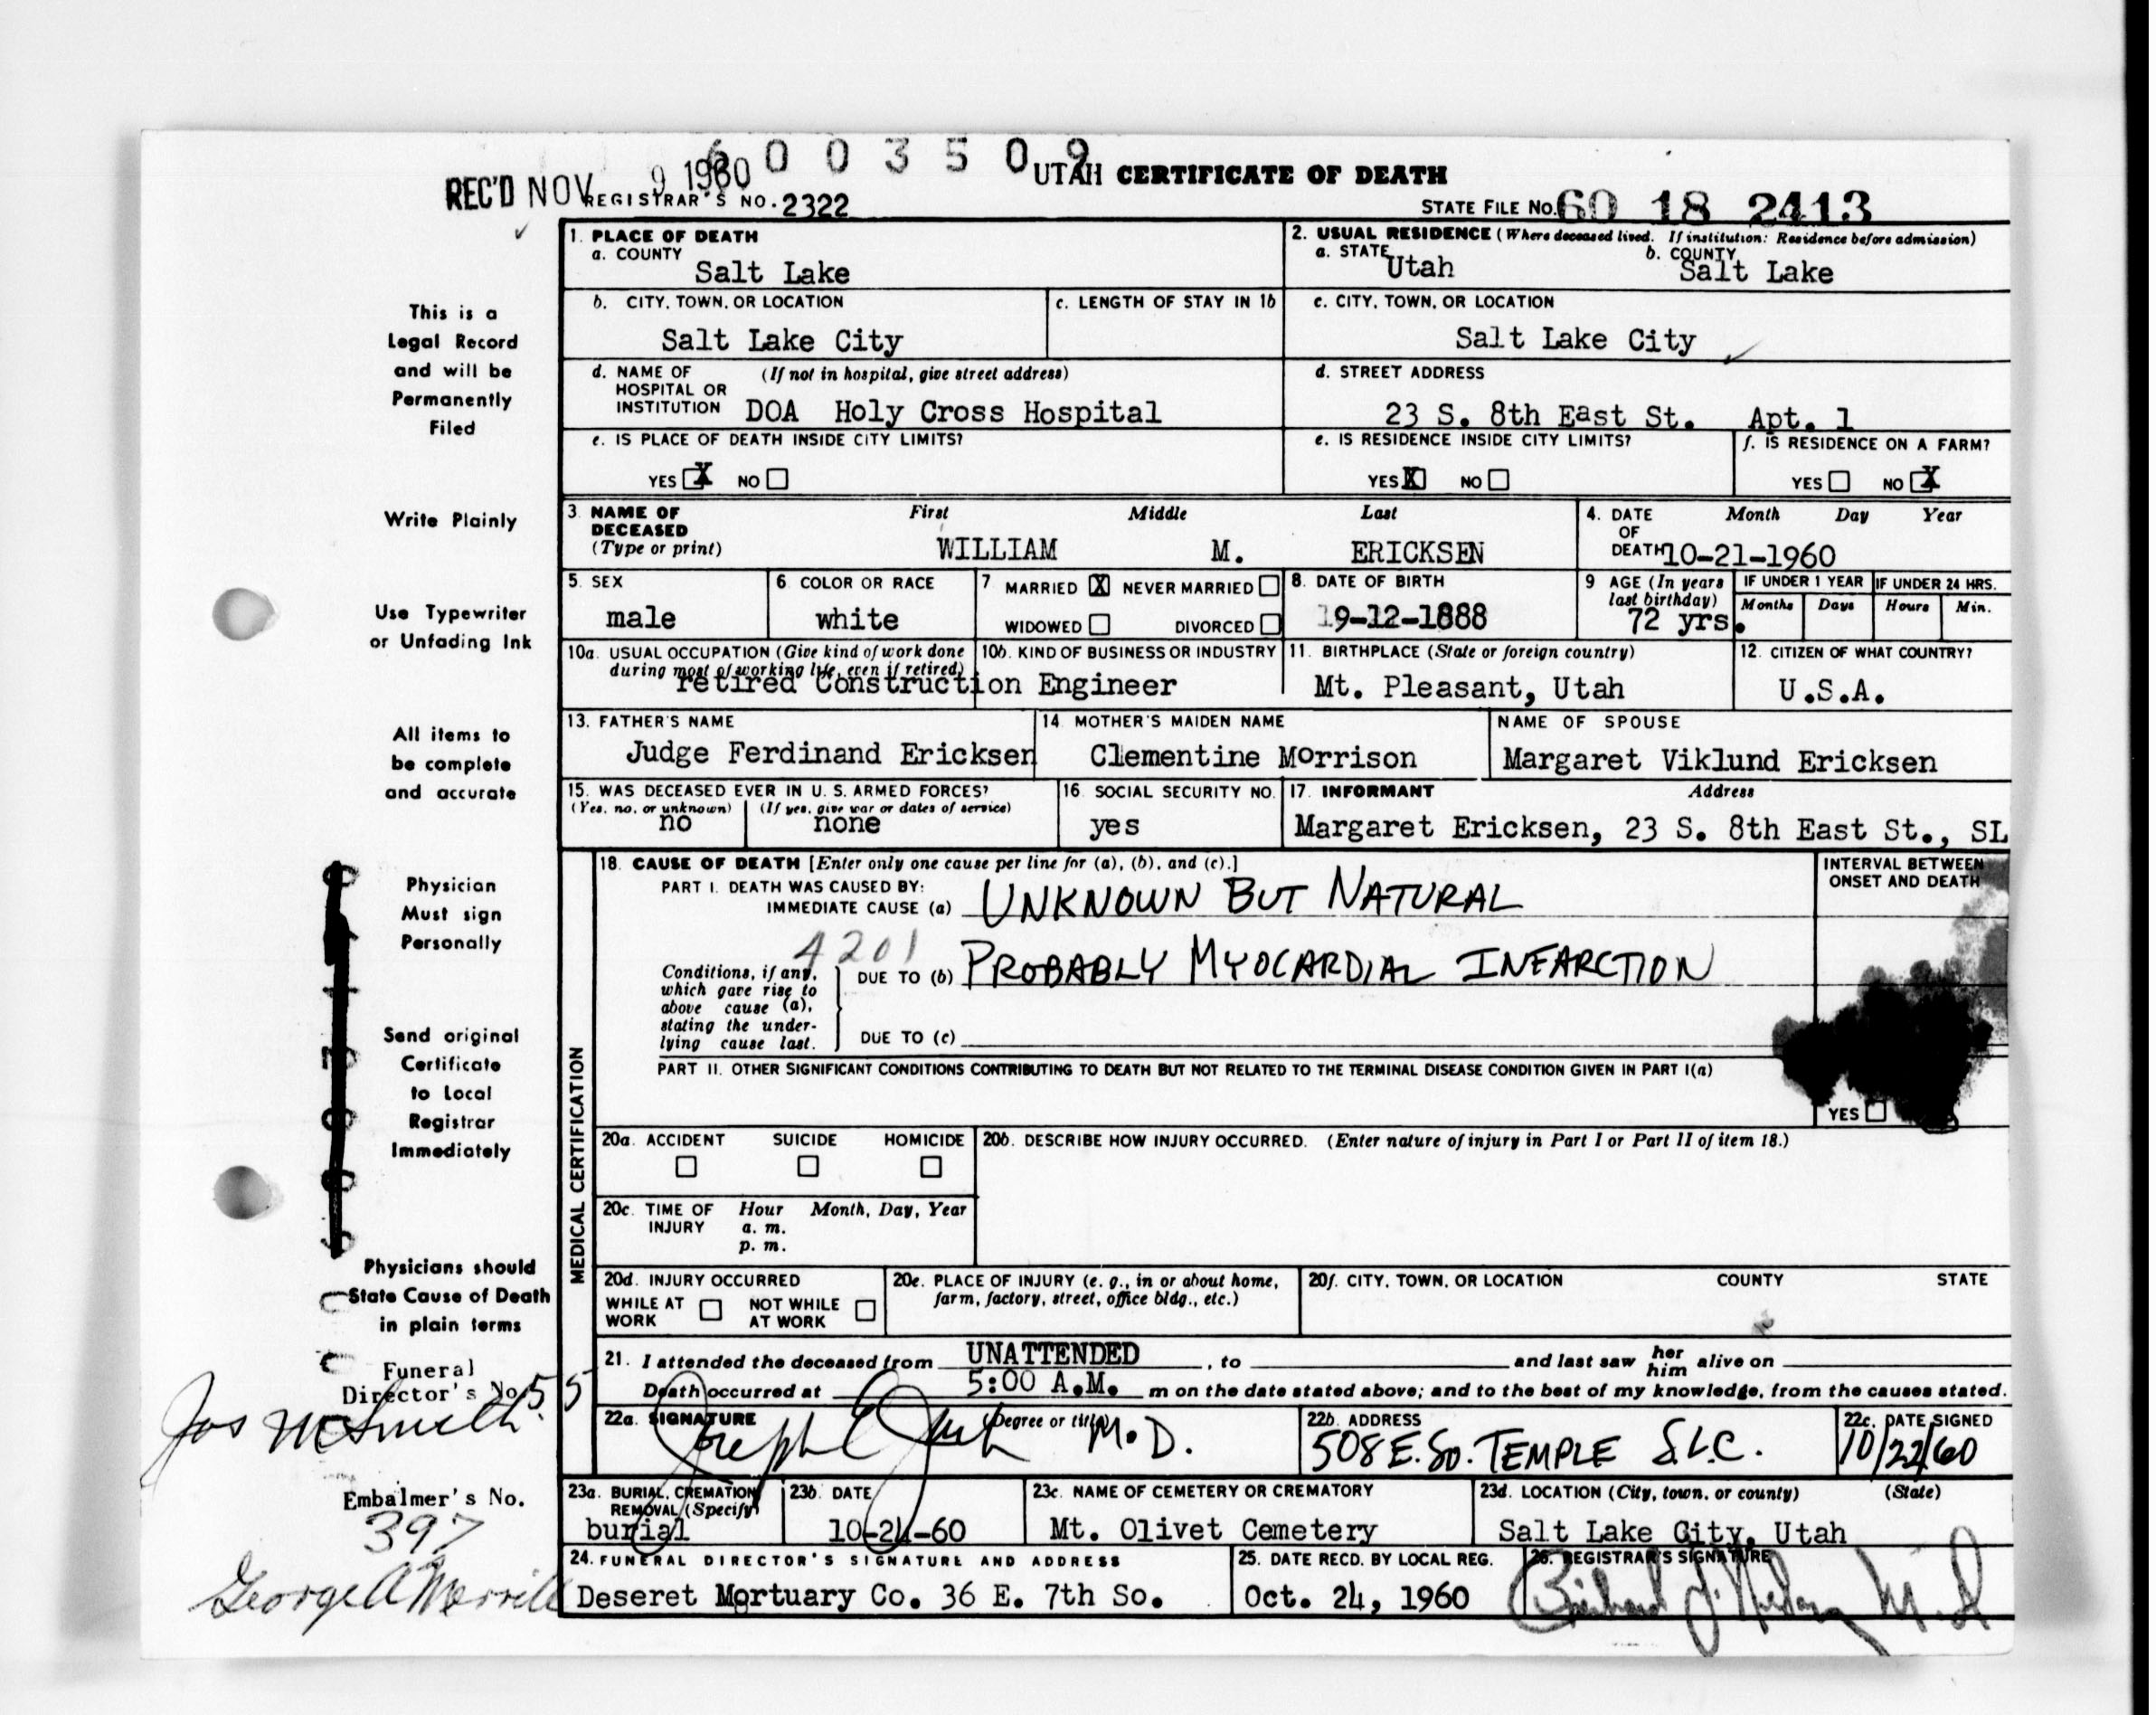 6003509
REC'D NOV 9 1960
REGISTRAR'S NO. 2322
UTAH CERTIFICATE OF DEATH
STATE FILE NO. 60 18 2413
This is a
Legal Record
and will be
Permanently
Filed
Write Plainly
Use Typewriter
or Unfading Ink
All items to
be complete
and accurate
Physician
Must sign
Personally
Send original
Certificate
to Local
Registrar
Immediately
Physicians should
State Cause of Death
in plain terms
Funeral
Director's No. 55
Jos McSmith
Embalmer's No.
397
George A Merrill
1. PLACE OF DEATH
a. COUNTY
Salt Lake
2. USUAL RESIDENCE (Where deceased lived. If institution: Residence before admission)
a. STATE Utah b. COUNTY Salt Lake
b. CITY, TOWN, OR LOCATION
Salt Lake City
c. LENGTH OF STAY IN 1b
c. CITY, TOWN, OR LOCATION
Salt Lake City
d. NAME OF HOSPITAL OR INSTITUTION (If not in hospital, give street address)
DOA Holy Cross Hospital
d. STREET ADDRESS
23 S. 8th East St. Apt. 1
e. IS PLACE OF DEATH INSIDE CITY LIMITS?
YES X NO
e. IS RESIDENCE INSIDE CITY LIMITS?
YES X NO
f. IS RESIDENCE ON A FARM?
YES NO X
3. NAME OF DECEASED (Type or print)
First Middle Last
WILLIAM M. ERICKSEN
4. DATE OF DEATH Month Day Year
10-21-1960
5. SEX
male
6. COLOR OR RACE
white
7 MARRIED X NEVER MARRIED
WIDOWED DIVORCED
8. DATE OF BIRTH
9-12-1888
9 AGE (In years last birthday)
72 yrs.
IF UNDER 1 YEAR IF UNDER 24 HRS.
Months Days Hours Min.
10a. USUAL OCCUPATION (Give kind of work done during most of working life, even if retired)
10b. KIND OF BUSINESS OR INDUSTRY
retired Construction Engineer
11. BIRTHPLACE (State or foreign country)
Mt. Pleasant, Utah
12. CITIZEN OF WHAT COUNTRY?
U.S.A.
13. FATHER'S NAME
Judge Ferdinand Ericksen
14. MOTHER'S MAIDEN NAME
Clementine Morrison
NAME OF SPOUSE
Margaret Viklund Ericksen
15. WAS DECEASED EVER IN U. S. ARMED FORCES?
(Yes, no, or unknown) (If yes, give war or dates of service)
no none
16. SOCIAL SECURITY NO.
yes
17. INFORMANT Address
Margaret Ericksen, 23 S. 8th East St., SL
MEDICAL CERTIFICATION
18. CAUSE OF DEATH [Enter only one cause per line for (a), (b), and (c).]
INTERVAL BETWEEN ONSET AND DEATH
PART I. DEATH WAS CAUSED BY:
IMMEDIATE CAUSE (a) UNKNOWN BUT NATURAL
4201
Conditions, if any, which gave rise to above cause (a), stating the underlying cause last.
DUE TO (b) PROBABLY MYOCARDIAL INFARCTION
DUE TO (c)
PART II. OTHER SIGNIFICANT CONDITIONS CONTRIBUTING TO DEATH BUT NOT RELATED TO THE TERMINAL DISEASE CONDITION GIVEN IN PART I(a)
YES
20a. ACCIDENT SUICIDE HOMICIDE
20b. DESCRIBE HOW INJURY OCCURRED. (Enter nature of injury in Part I or Part II of item 18.)
20c. TIME OF INJURY Hour Month, Day, Year
a. m.
p. m.
20d. INJURY OCCURRED
WHILE AT WORK NOT WHILE AT WORK
20e. PLACE OF INJURY (e. g., in or about home, farm, factory, street, office bldg., etc.)
20f. CITY, TOWN, OR LOCATION COUNTY STATE
21. I attended the deceased from UNATTENDED, to and last saw her him alive on
Death occurred at 5:00 A.M. m on the date stated above; and to the best of my knowledge, from the causes stated.
22a. SIGNATURE (Degree or title)
Joseph E M.D.
22b. ADDRESS
508 E. SO. TEMPLE S.L.C.
22c. DATE SIGNED
10/22/60
23a. BURIAL, CREMATION, REMOVAL (Specify)
burial
23b. DATE
10-24-60
23c. NAME OF CEMETERY OR CREMATORY
Mt. Olivet Cemetery
23d. LOCATION (City, town, or county) (State)
Salt Lake City, Utah
24. FUNERAL DIRECTOR'S SIGNATURE AND ADDRESS
Deseret Mortuary Co. 36 E. 7th So.
25. DATE RECD. BY LOCAL REG.
Oct. 24, 1960
26. REGISTRAR'S SIGNATURE
M.D